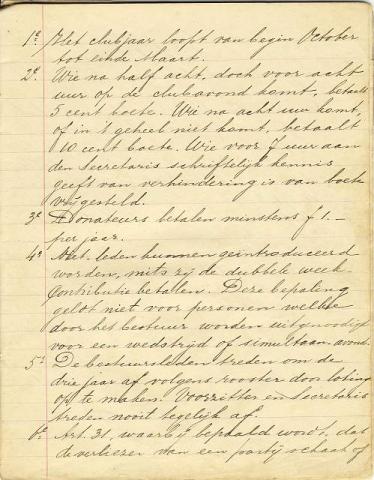 1e. Het clubjaar loopt van begin October
tot einde Maart.
2e. Wie na half acht, doch voor acht
uur op de clubavond komt, betaalt
5 cent boete. Wie na acht uur komt,
of in 't geheel niet komt, betaalt
10 cent boete. Wie voor 7 uur aan
den Secretaris schriftelijk kennis
geeft van verhindering is van boete
vrijgesteld.
3e Donateurs betalen minstens f 1.-
per jaar.
4e Niet-leden kunnen geïntroduceerd
worden, mits zij de dubbele week-
contributie betalen. Deze bepaling
geldt niet voor personen welke
door het bestuur worden uitgenoodigd
voor een wedstrijd of simultaan-avond.
5e De bestuursleden treden om de
drie jaar af volgens rooster door loting
op te maken. Voorzitter en Secretaris
treden nooit tegelijk af.
6e Art. 31, waarbij bepaald wordt, dat
de verliezer van een partij schaak of